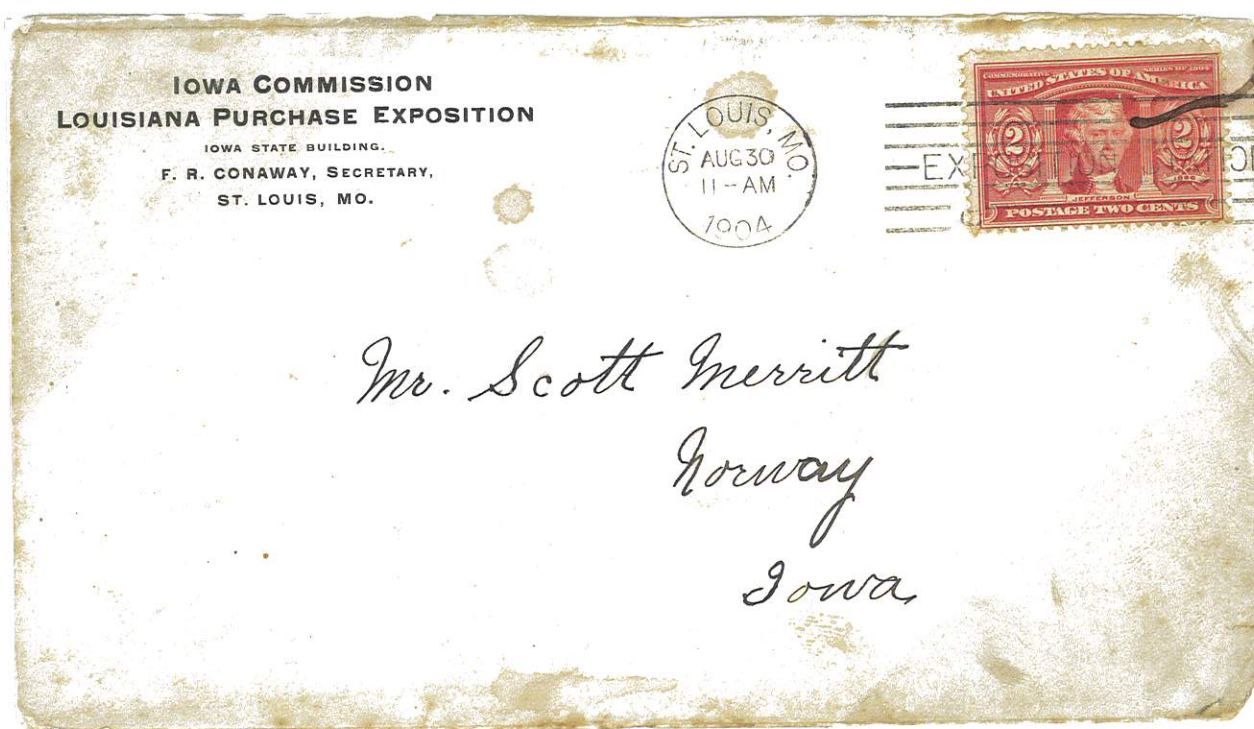 IOWA COMMISSION
LOUISIANA PURCHASE EXPOSITION
IOWA STATE BUILDING.
F. R. CONAWAY, SECRETARY,
ST. LOUIS, MO.
ST. LOUIS, MO.
AUG 30
11-AM
1904
COMMEMORATIVE SERIES OF 1904
UNITED STATES OF AMERICA
2 2
JEFFERSON
POSTAGE TWO CENTS
Mr. Scott Merritt
Norway
Iowa